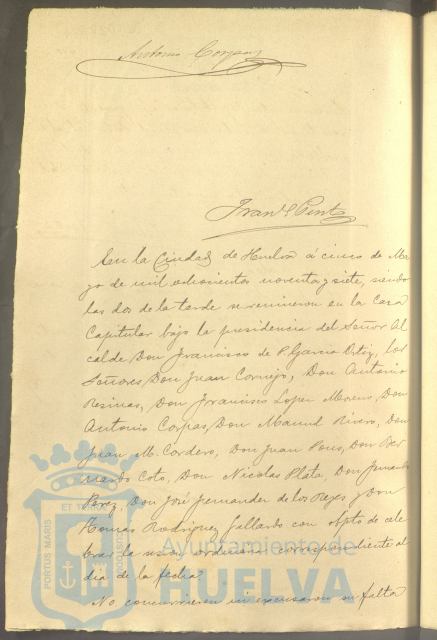 Antonio Corpas
Fran.co Pinto
En la Ciudad de Huelva á cinco de Ma
yo de mil ochocientos noventa y siete, siendo
las dos de la tarde se reunieron en la Casa
Capitular bajo la presidencia del Señor Al
calde Don Francisco de P. Garcia Ortiz, los
Señores Don Juan Cornejo, Don Antonio
Resinas, Don Francisco Lopez Moreno, Don
Antonio Corpas, Don Manuel Rivero, Don
Juan M. Cordero, Don Juan Pons, Don Ber
nardo Coto, Don Nicolas Plata, Don Fernando
Perez, Don José Fernandez de los Reyes y Don
Tomas Rodriguez Gallardo con objeto de cele
brar la sesion ordinaria correspondiente al
dia de la fecha.
No concurrieron ni excusaron su falta
Ayuntamiento de
HUELVA
PORTUS MARIS
ET TERRAE
CUSTODIA